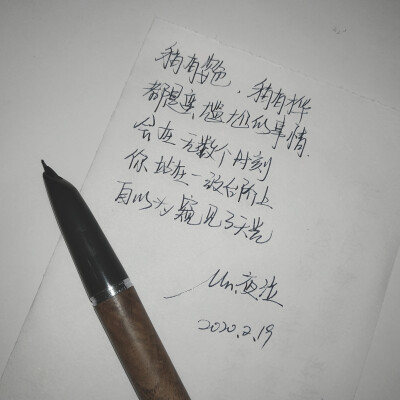 稍有姿色,稍有才华
都是蛮尴尬的事情.
会在无数个时刻
你站在一级台阶上
自以为窥见了天光
Mr.夜泣
2020.2.19